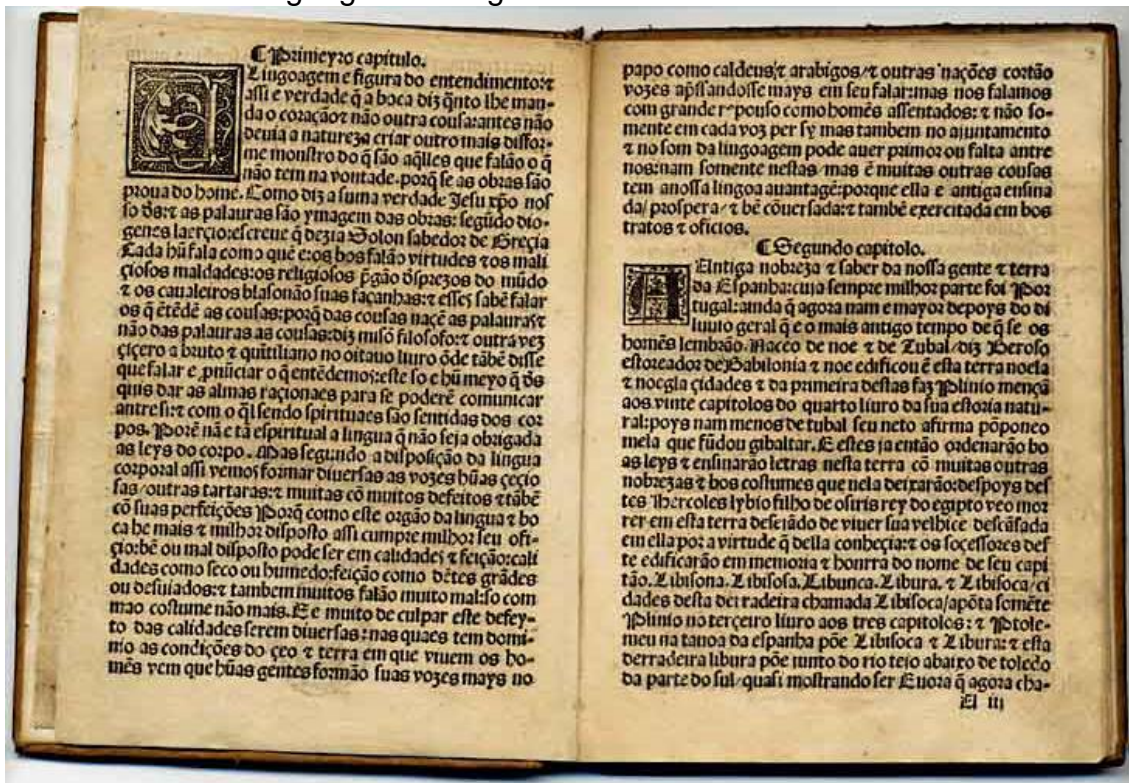 ¶ Primeyro capitulo.
A Lingoagem e figura do entendimento: ⁊
assi e verdade q̃ a boca diz q̃nto lhe man-
da o coração⁊ não outra cousa: antes não
deuia a natureza criar outro mais disfor-
me monstro do q̃ são aq̃lles que falão o q̃
não tem na vontade. porq̃ se as obras são
proua do homẽ. Como diz a suma verdade Jesu xp̃o nos
so d̃s: ⁊ as palauras são ymagem das obras: segũdo dio-
genes laerçio: escreue q̃ dezia Solon sabedor de Greçia
Cada hũ fala como quẽ e: os bos falão virtudes ⁊os mali
çiosos maldades: os religiosos p̃gão d̃sprezos do mũdo
⁊ os caualeiros blasonão suas façanhas: ⁊ esses sabẽ falar
os q̃ ẽtẽdẽ as cousas: porq̃ das cousas naçẽ as palauras⁊
não das palauras as cousas: diz misõ filosofo: ⁊ outra vez
çiçero a bruto ⁊ quĩtiliano no oitauo liuro õde tãbẽ disse
que falar e ,pnũciar o q̃ entẽdemos: este so e hũ meyo q̃ d̃s
quis dar as almas raçionaes para se poderẽ comunicar
antre si: ⁊ com o q̃l sendo spirituaes são sentidas dos cor
pos. Porẽ nã e tã espiritual a lingua q̃ não seja obrigada
as leys do corpo. Mas segundo a disposição da lingua
corporal assi vemos formar diuersas as vozes hũas çeçio
sas/outras tartaras: ⁊ muitas cõ muitos defeitos ⁊tãbẽ
cõ suas perfeições Porq̃ como este orgão da lingua ⁊ bo
ca he mais ⁊ milhor disposto assi cumpre milhor seu ofi-
çio: bẽ ou mal disposto pode ser em calidades ⁊ feição: cali
dades como seco ou humedo: feição como dẽtes grãdes
ou desuiados: ⁊ tambem muitos falão muito mal: so com
mao costume não mais. E e muito de culpar este defey-
to das calidades serem diuersas: nas quaes tem domi-
nio as condições do çeo ⁊ terra em que viuem os ho-
mẽs vem que hũas gentes formão suas vozes mays no
papo como caldeus/⁊ arabigos/⁊ outras nações cortão
vozes ap̃ssandosse mays em seu falar: mas nos falamos
com grande repouso como homẽs assentados: ⁊ não so-
mente em cada voz per sy mas tambem no ajuntamento
⁊ no som da lingoagem pode auer primor ou falta antre
nos: nam somente nestas/mas ẽ muitas outras cousas
tem anossa lingoa auantagẽ: porque ella e antiga ensina
da/ prospera/ ⁊ bẽ cõuersada: ⁊ tambẽ exercitada em bos
tratos ⁊ oficios.
¶ Segundo capitolo.
A Antiga nobreza ⁊ saber da nossa gente ⁊ terra
da Espanha: cuja sempre milhor parte foi Por
tugal: ainda q̃ agora nam e mayor depoys do di
luuio geral q̃ e o mais antigo tempo de q̃ se os
homẽs lembrão. Naceo de noe ⁊ de Tubal/diz Beroso
estoreador de Babilonia ⁊ noe edificou ẽ esta terra noela
⁊ noegla çidades ⁊ da primeira destas faz Plinio mençã
aos vinte capitolos do quarto liuro da sua estoria natu-
ral: poys nam menos de tubal seu neto afirma põponeo
mela que fũdou gibaltar. E estes ja então ordenarão bo
as leys ⁊ ensinarão letras nesta terra cõ muitas outras
nobrezas ⁊ bos costumes que nela deixarão: despoys des
tes Hercoles lybio filho de osiris rey do egipto veo mor
rer em esta terra desejãdo de viuer sua velhice descãsada
em ella por a virtude q̃ della conheçia: ⁊ os soçessores des
te edificarão em memoria ⁊ honrra do nome de seu capi
tão. Libisona. Libisosa. Libunca. Libura. ⁊ Libisoca/ci
dades desta derradeira chamada Libisoca/apõta somẽte
Plinio no terçeiro liuro aos tres capitolos: ⁊ Ptole-
meu na tauoa da espanha põe Libisoca ⁊ Libura: ⁊ esta
derradeira libura põe junto do rio tejo abaixo de toledo
da parte do sul/quasi mostrando ser Euora q̃ agora cha-
A iii